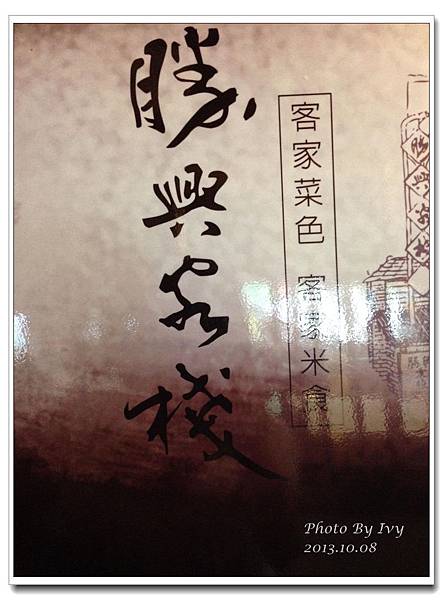 勝興客棧
客家菜色 客家米食
勝興客棧
Photo By Ivy
2013.10.08